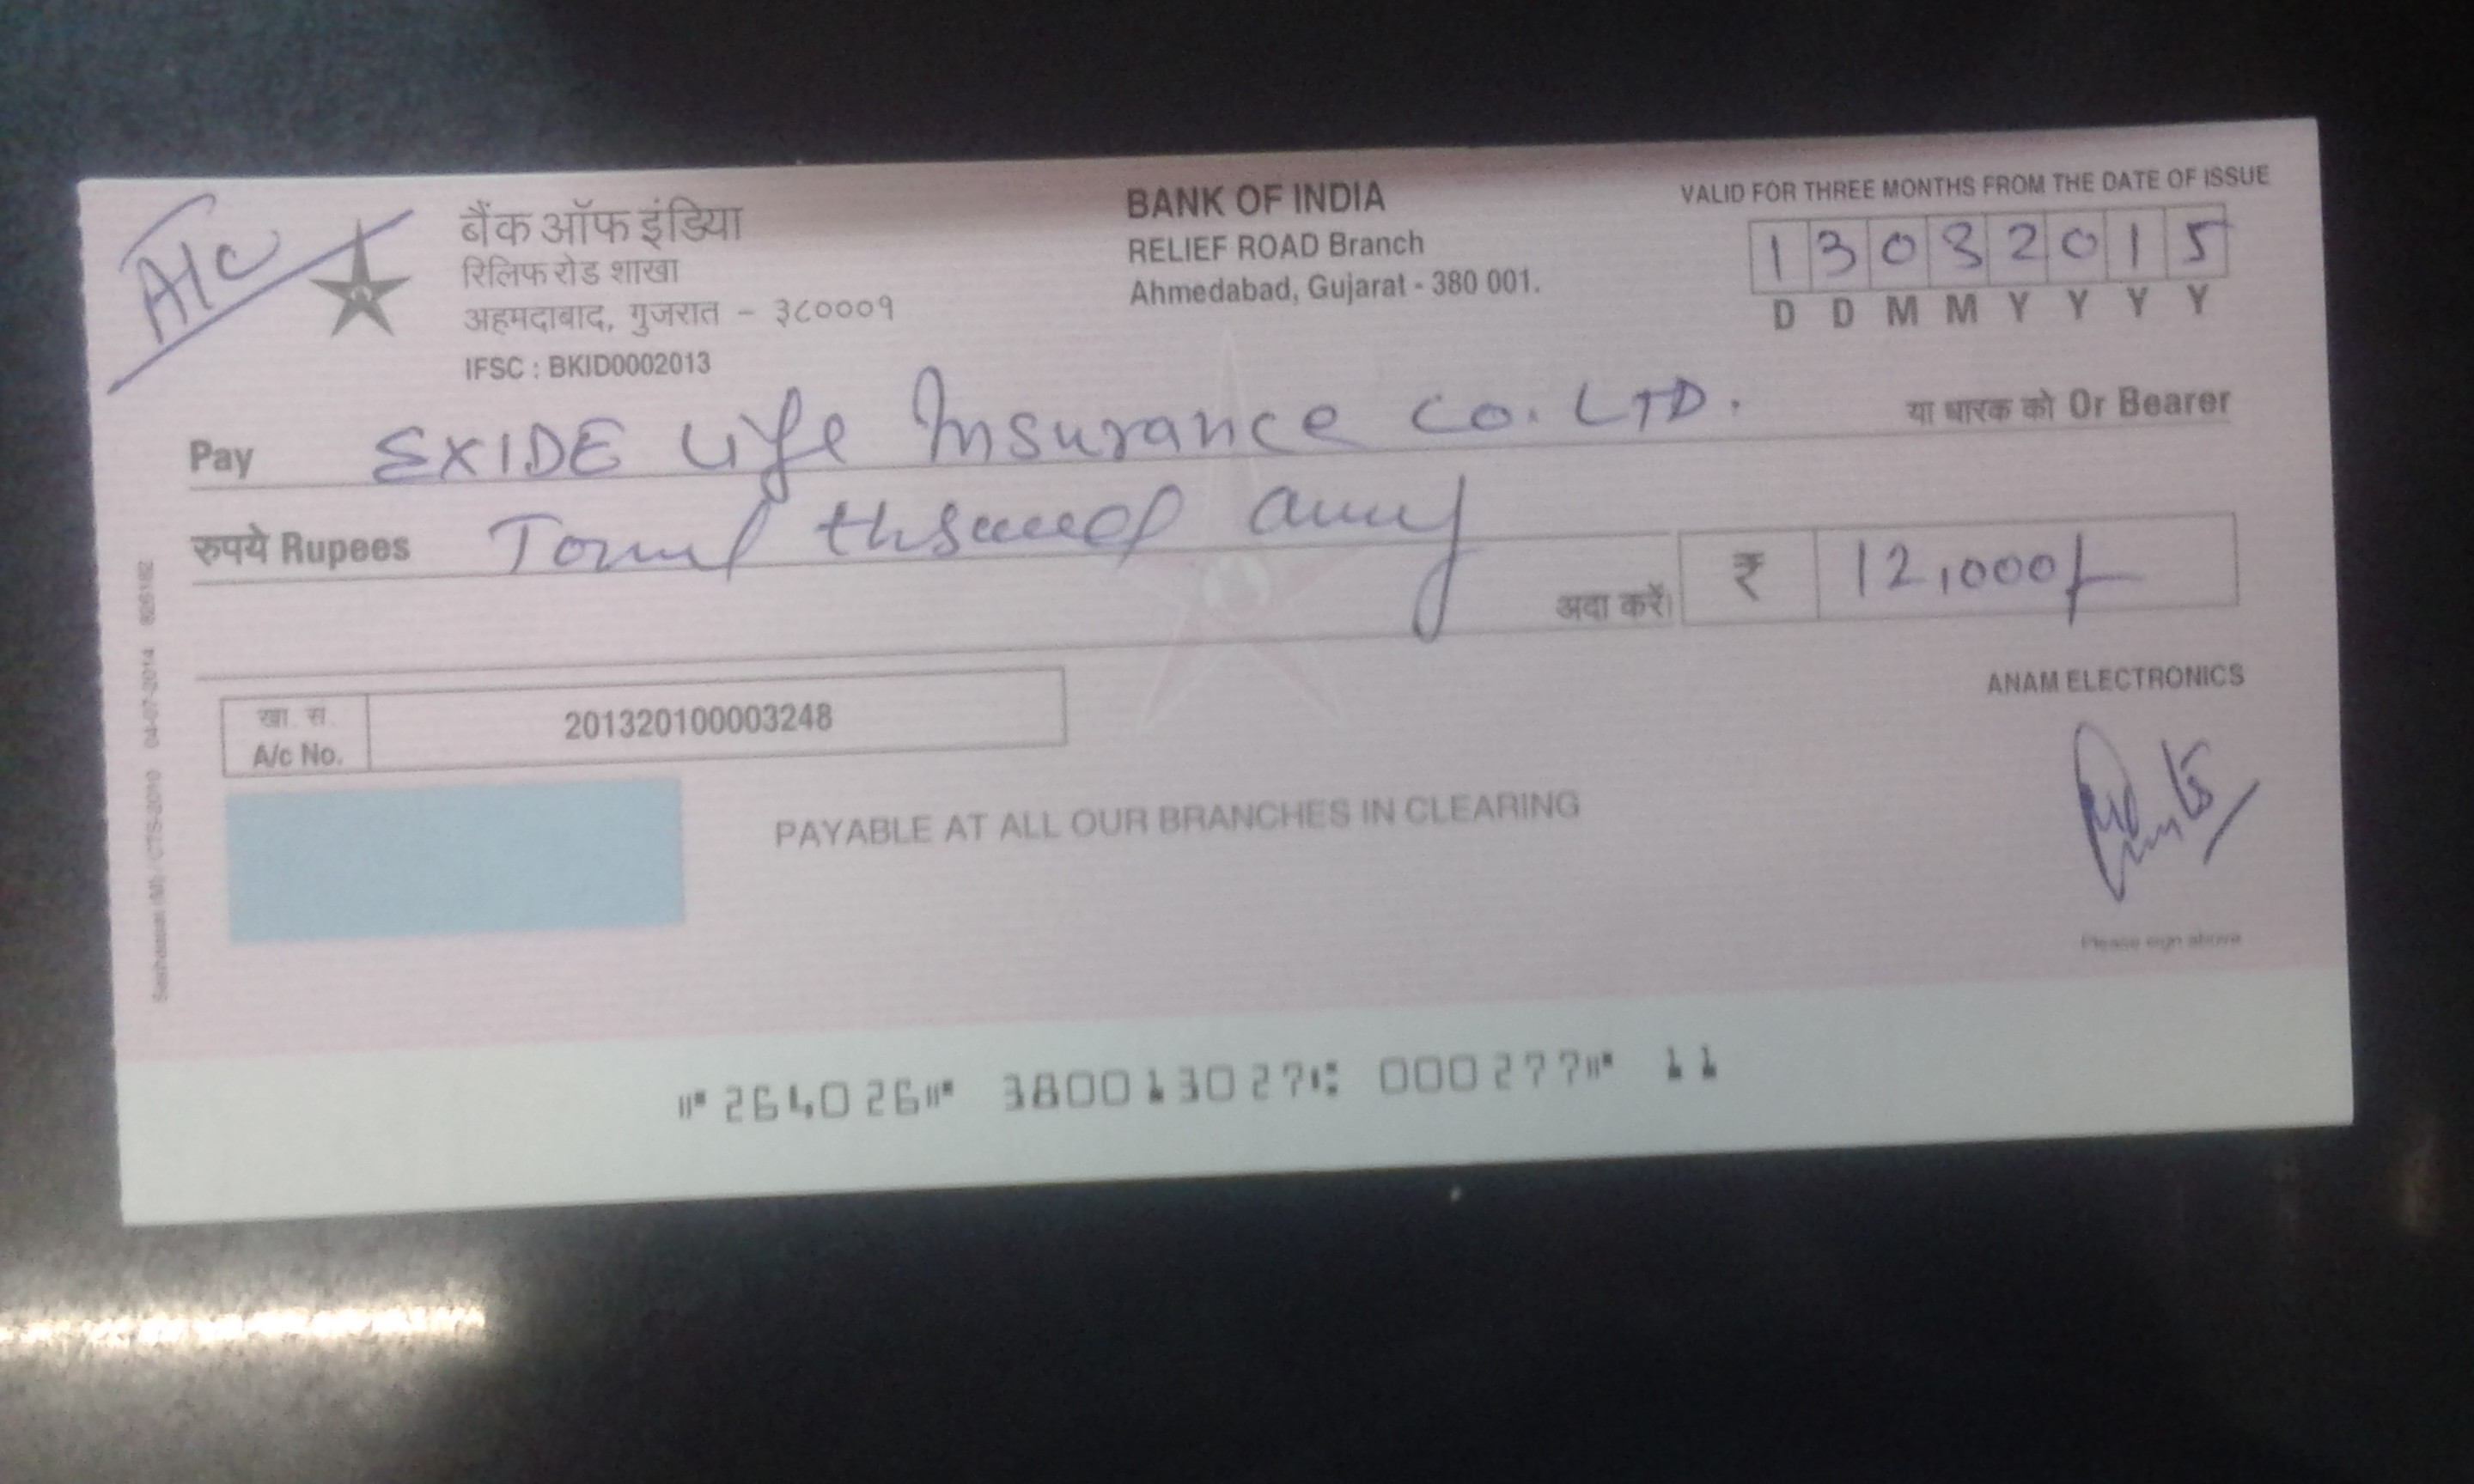 A/c
बैंक ऑफ इंडिया
रिलिफ रोड शाखा
अहमदाबाद, गुजरात - ३८०००१
IFSC : BKID0002013
BANK OF INDIA
RELIEF ROAD Branch
Ahmedabad, Gujarat - 380 001.
VALID FOR THREE MONTHS FROM THE DATE OF ISSUE
1 3 0 3 2 0 1 5
D D M M Y Y Y Y
Pay EXIDE Life Insurance Co. LTD. या धारक को Or Bearer
रुपये Rupees
अदा करें। ₹ 12,000/-
खा. सं.
A/c No. 201320100003248
ANAM ELECTRONICS
PAYABLE AT ALL OUR BRANCHES IN CLEARING
Please sign above
CTS-2010 04-07-2014
⑈264026⑈ 380013027⑆ 000277⑈ 11